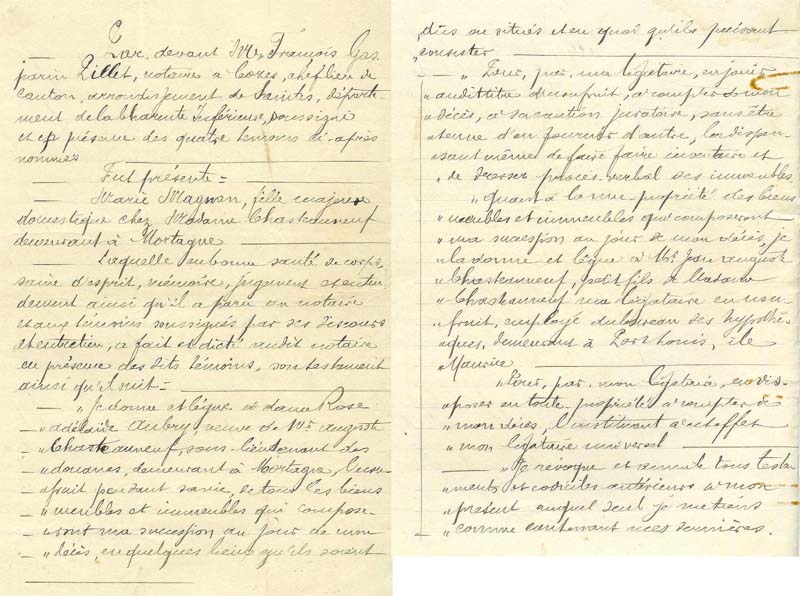 Par devant Me François Gas
parin Zillet, notaire à Cozes, chef lieu de
canton, arrondissement de Saintes, départe-
ment de la Charente Inférieure, soussigné
et en présence des quatre témoins ci-après
nommés
Fut présente =
Marie Magnan, fille majeure
domestique chez Madame Chasteauneuf
demeurant à Mortagne
Laquelle en bonne santé de corps,
saine d'esprit, mémoire, jugement et enten
dement ainsi qu'il a paru au notaire
et aux témoins soussignés par ses discours
et entretien, a fait et dicté audit notaire
en présence des dits témoins, son testament
ainsi qu'il suit =
— " Je donne et lègue à dame Rose
— " adélaïde Aubry, veuve de Mr auguste
" Chasteauneuf, sous-lieutenant des
— " douanes, demeurant à Mortagne, l'usu
— " fruit pendant sa vie, de tous les biens
— " meubles et immeubles qui compose
— " ront ma succession au jour de mon
— " décès, en quelques lieux qu'ils soient
" dûs ou situés et en quoi qu'ils puissent
" consister
— " Pour, par, ma légataire, en jouir
" audit titre d'usufruit, à compter de mon
" décès, à sa caution juratoire, sans être
" tenue d'en fournir d'autre, la dispen-
" sant même de faire faire inventaire et
" de dresser procès-verbal des immeubles.
" Quant à la nue propriété des biens
" meubles et immeubles qui composeront
" ma succession au jour de mon décès, je
" la donne et lègue à Mr Jean august
" Chasteauneuf, petit fils de Madame
" Chasteauneuf ma légataire en usu
" fruit, employé au bureau des hypothè
" ques, demeurant à Port Louis, île
" Maurice
" Pour, par, mon légataire, en dis
" poser en toute propriété à compter de
" mon décès, l'instituant à cet effet
" mon légataire universel
" Je révoque et annule tous testa
" ments et codiciles antérieurs à mon
" présent auquel seul je m'tiens
" comme contenant mes dernières.